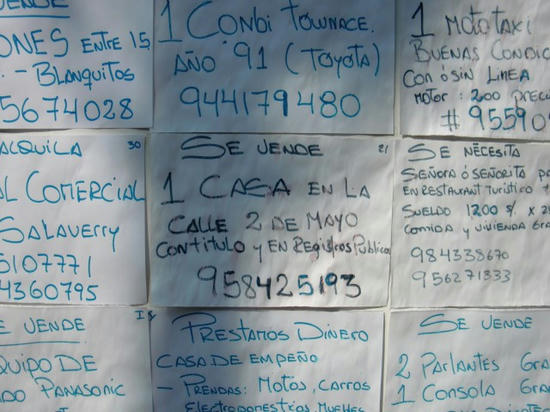 ENDE
ONES ENTRE 15
. - BLANQUITOS
5674028
1 COMBI TOWNACE.
AÑO '91 (TOYOTA)
944179480
1 MOTOTAXI
BUENAS CONDIC
CON Ó SIN LINEA
MOTOR : 200 PRECI
# 95590
ALQUILA 30
AL COMERCIAL
SALAVERRY
5107771
4360795
SE VENDE 21
1 CASA EN LA
CALLE 2 DE MAYO
CON TITULO Y EN REGISTROS PUBLICO
958425193
SE NECESITA
SEÑORA Ó SEÑORITA PA
EN RESTAURANT TURÍSTICO +
SUELDO 1200 S/. X 2
COMIDA Y VIVIENDA GRA
984338670
956271333
E VENDE
QUIPO DE
DO PANASONIC
PRESTAMOS DINERO
CASA DE EMPEÑO
- PRENDAS: MOTOS, CARROS
ELECTRODOMESTICOS MUEBLES
SE VENDE
2 PARLANTES GRA
1 CONSOLA GRA